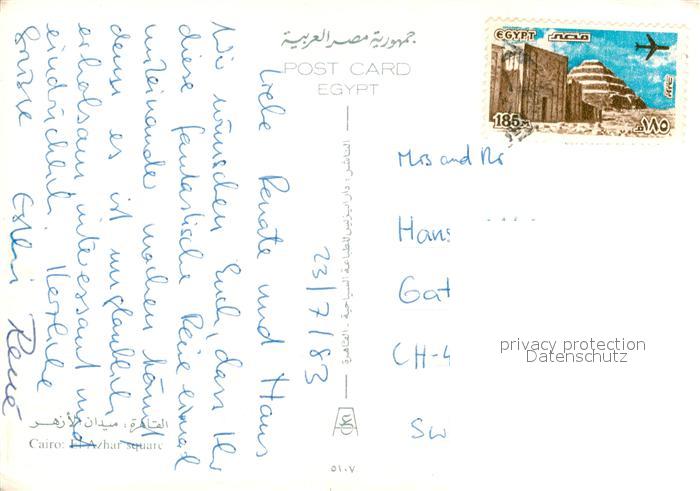 جمهورية مصر العربية
POST CARD
EGYPT
EGYPT مصر
185 م١٨٥
23/7/83
Liebe Renate und Hans
Wir wünschen Euch, dass Ihr
diese fantastische Reise einmal
miteinander machen könnt
denn es ist unglaublich
erholsam, interessant und
eindrücklich. Herzliche
Grüsse Esthi René
Mrs and Mr
Hans
Gat
CH-4
Sw
privacy protection
Datenschutz
القاهرة، ميدان الأزهر
Cairo: El Azhar square
٥١٠٧